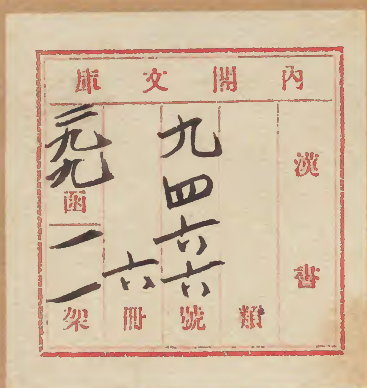 內閣文庫
漢書
類
九四六六號
六冊
二九九函
一一架